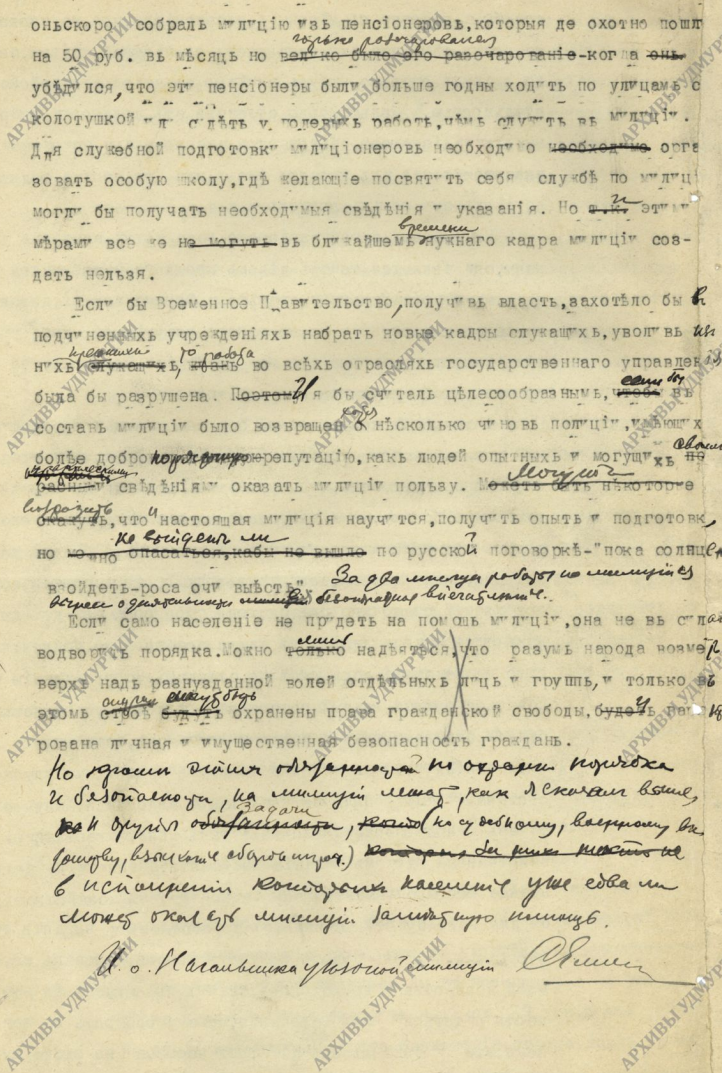 оньскоро собралъ милицію изъ пенсіонеровъ, которыя де охотно пошл
горько разочаровался
на 50 руб. въ мѣсяцъ но велико было его разочарованіе-когда онъ
убѣдился, что эти пенсіонеры были больше годны ходить по улицамъ с
колотушкой или сидѣть у полевыхъ работъ, чѣмъ служить въ милиціи.
Для служебной подготовки милиціонеровъ необходимо необходимо орга
зовать особую школу, гдѣ желающіе посвятить себя службѣ по милиц
могли бы получать необходимыя свѣдѣнія и указанія. Но т.к. и этими
времени
мѣрами все же не могутъ въ ближайшемъ нужнаго кадра милиціи соз-
дать нельзя.
Если бы Временное Правительство, получивъ власть, захотѣло бы в
подчиненныхъ учрежденіяхъ набрать новые кадры служащихъ, уволивъ из
прежнихъ, то работа
нихъ служащихъ, во всѣхъ отрасляхъ государственнаго управленія
была бы разрушена. Поэтому И я бы считалъ цѣлесообразнымъ, чтобы если бы въ
составъ милиціи было возвращено нѣсколько чиновъ полиціи, имѣющих
болѣе добро порядочную репутацію, какъ людей опытныхъ и могущихъ своими
разными свѣдѣніями оказать милиціи пользу. Можетъ быть нѣкоторые Могутъ
возразить
скажутъ, что настоящая милиція научится, получить опытъ и подготовк,
не выйдетъ ли
но можно опасаться, кабы не вышло по русской поговоркѣ-"пока солнце
взойдетъ-роса очи выѣстъ". За два мѣсяца работы по милиціи
о дѣятельности безотрадное впечатлѣніе.
Если само населеніе не придетъ на помощь милиціи, она не въ сила
лишь
водворить порядка. Можно только надѣяться, что разумъ народа возмер
верхъ надъ разнузданной волей отдѣльныхъ лицъ и группъ, и только въ
этомъ будутъ охранены права гражданской свободы, будетъ га
рована личная и имущественная безопасность гражданъ.
Но кромѣ этихъ обязанностей по охранѣ порядка
и безопасности, на милиціи лежатъ, какъ я сказалъ выше,
задачи
и другія обязанности, (по судебному, военному
взысканіе сборовъ и проч.)
в исполненіи которыхъ населеніе уже едва ли
можетъ оказать милиціи помощь.
И. о. Начальника уѣздной милиціи
АРХИВЫ УДМУРТИИ